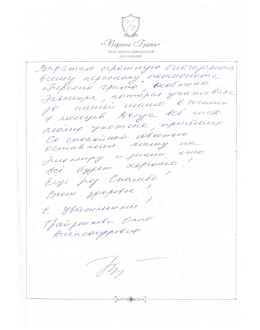 «Персона Грата»
Выражаю огромную благодарность
всему персоналу пансионата
«Персона Грата» особенно
которая ухаживала
за нашей мамой в течении
7 месяцев. Всегда всё чисто
мама ухожена,
Со спокойной совестью
оставляли маму на
и знали что
всё будет хорошо!
Ещё раз Спасибо!
Всем здоровья!
С Уважением!
Александровна